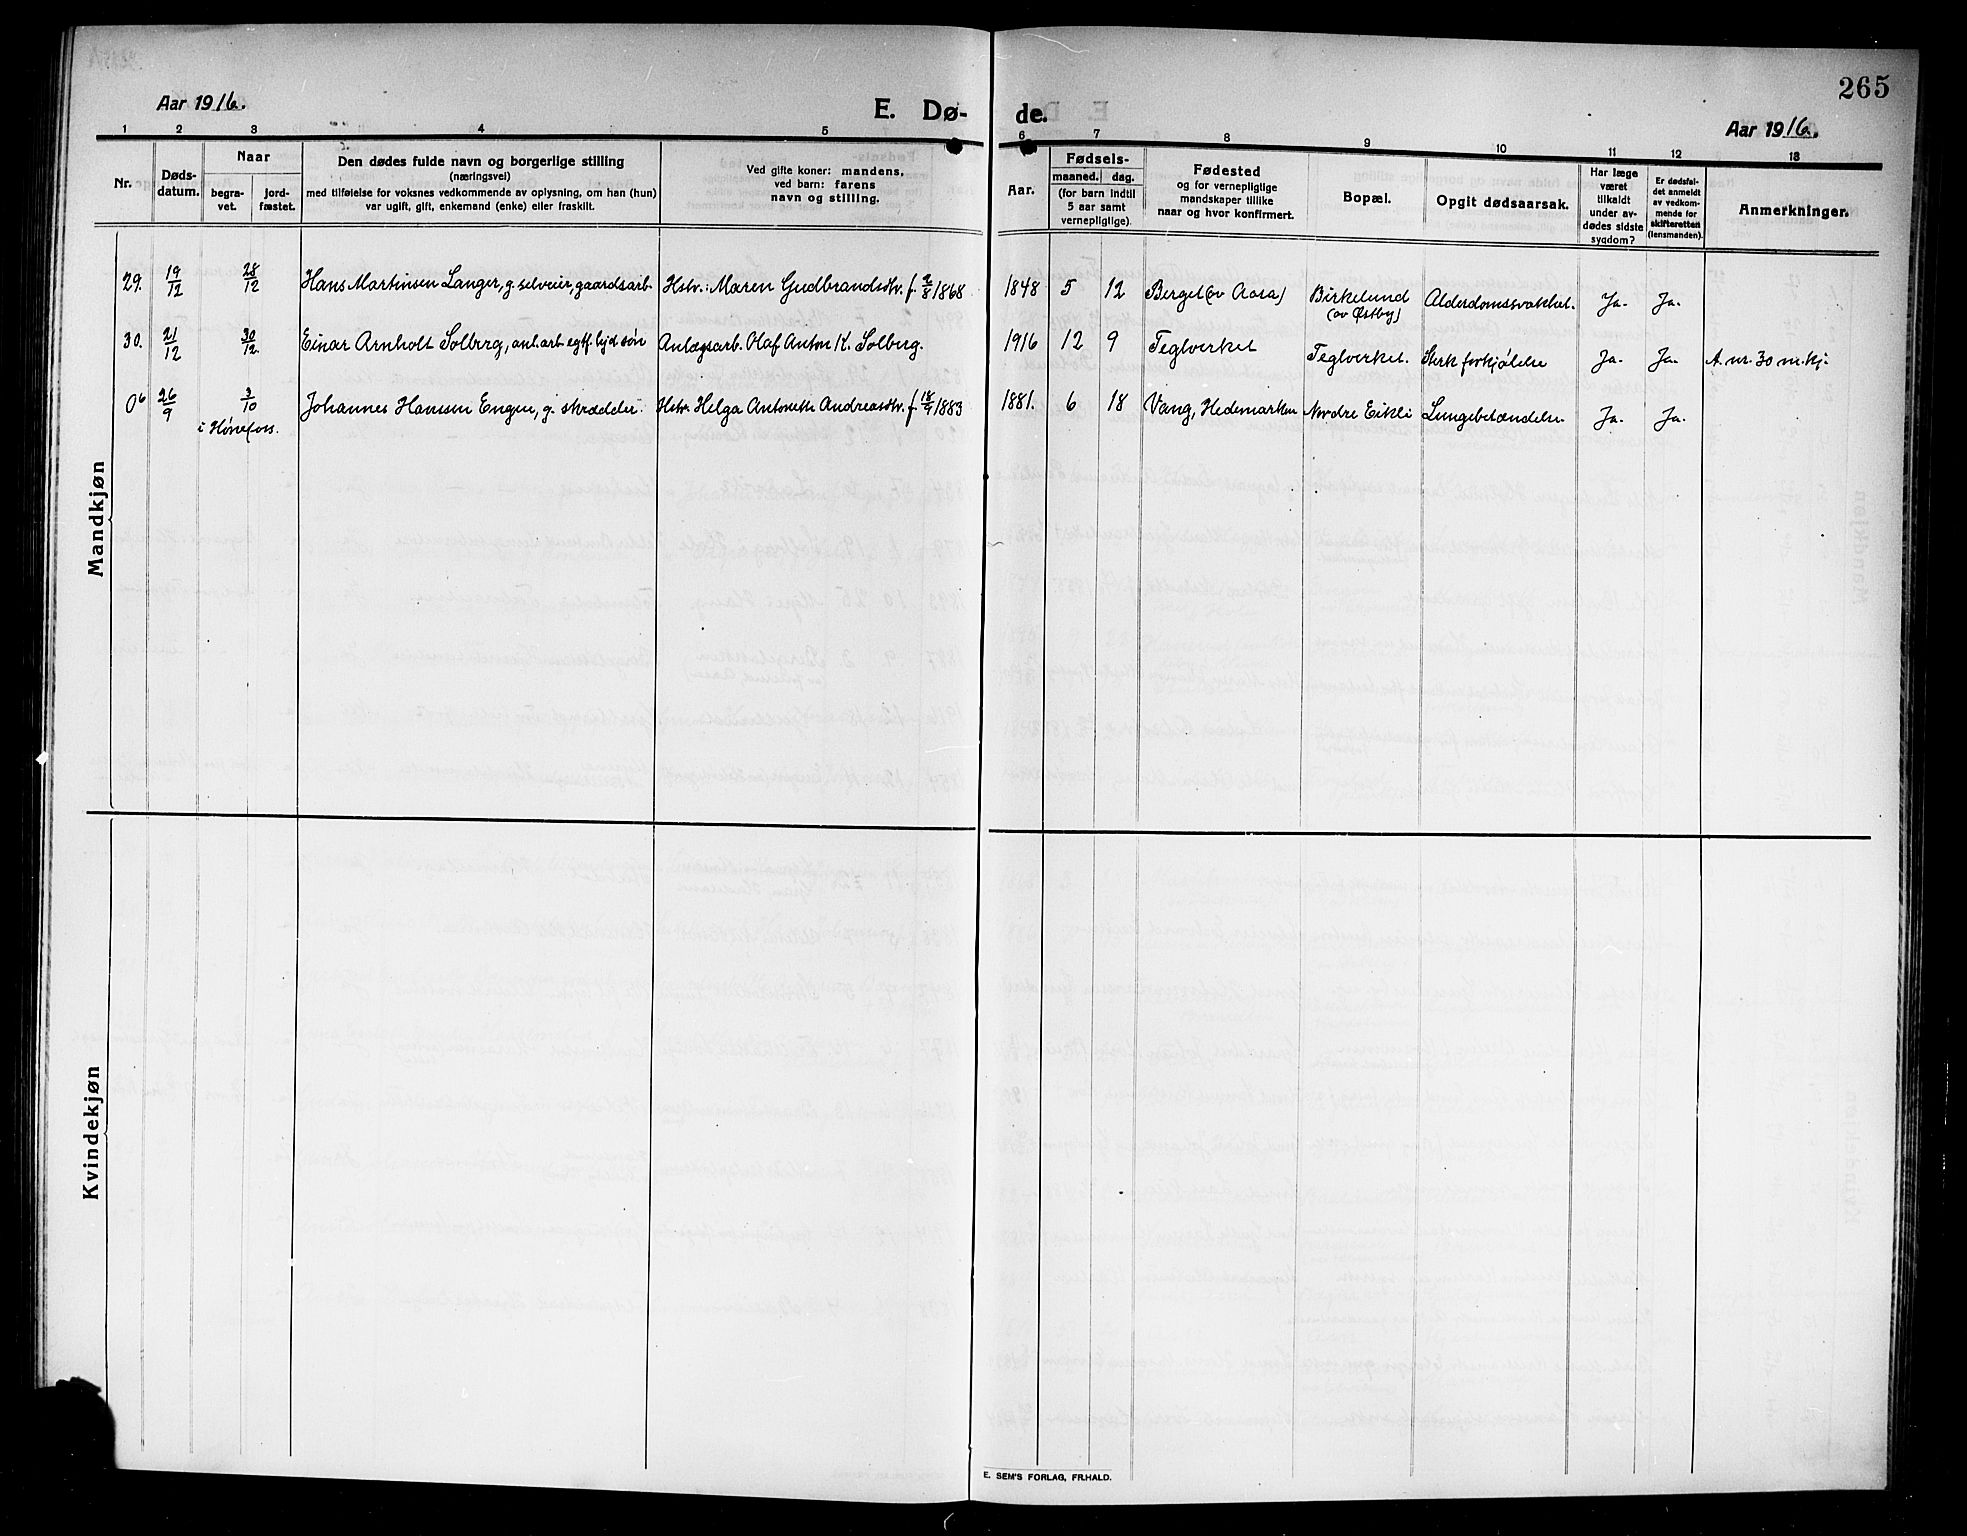 265
Aar 1916.
E. Dø-
de.
Aar 1916.
1 2 3 4 5 6 7 8 9 10 11 12 13
Nr.
Døds-
datum.
Naar
begra-
vet.
jord-
fæstet.
Den dødes fulde navn og borgerlige stilling
(næringsvei)
med tilføielse for voksnes vedkommende av oplysning, om han (hun)
var ugift, gift, enkemand (enke) eller fraskilt.
Ved gifte koner: mandens,
ved barn: farens
navn og stilling.
Aar.
Fødsels-
maaned. dag.
(for barn indtil
5 aar samt
vernepligtige).
Fødested
og for vernepligtige
mandskaper tillike
naar og hvor konfirmert.
Bopæl.
Opgit dødsaarsak.
Har læge
været
tilkaldt
under av-
dødes sidste
sygdom?
Er dødsfal-
det anmeldt
av vedkom-
mende for
skifteretten
(lensmanden).
Anmerkninger.
Mandkjøn
29. 19/12 28/12 Hans Martinsen Langer, g. selveier, gaardsarb. Hstr.: Maren Gudbrandsdtr. f. 2/8 1868 1848 5 12 Berget (ov Aasa) Birkelund (av Østby) Alderdomssvakhet. Ja. Ja.
30. 21/12 30/12. Einar Arnholt Solberg, anl.arb. egtf. søn Anlægsarb. Olaf Anton K. Solberg. 1916 12 9 Teglverket Teglverket. Sterk forkjølelse Ja. Ja. A. nr. 30 m.kj.
0⁶ 26/9 3/10 i Hønefoss. Johannes Hansen Engen, g. skrædder. Hstr. Helga Antonette Andreasdtr. f. 18/9 1883 1881. 6 18 Vang, Hedemarken Nordre Eikli Lungebetændelse Ja. Ja.
Kvindekjøn
E. SEM'S FORLAG, FR.HALD.